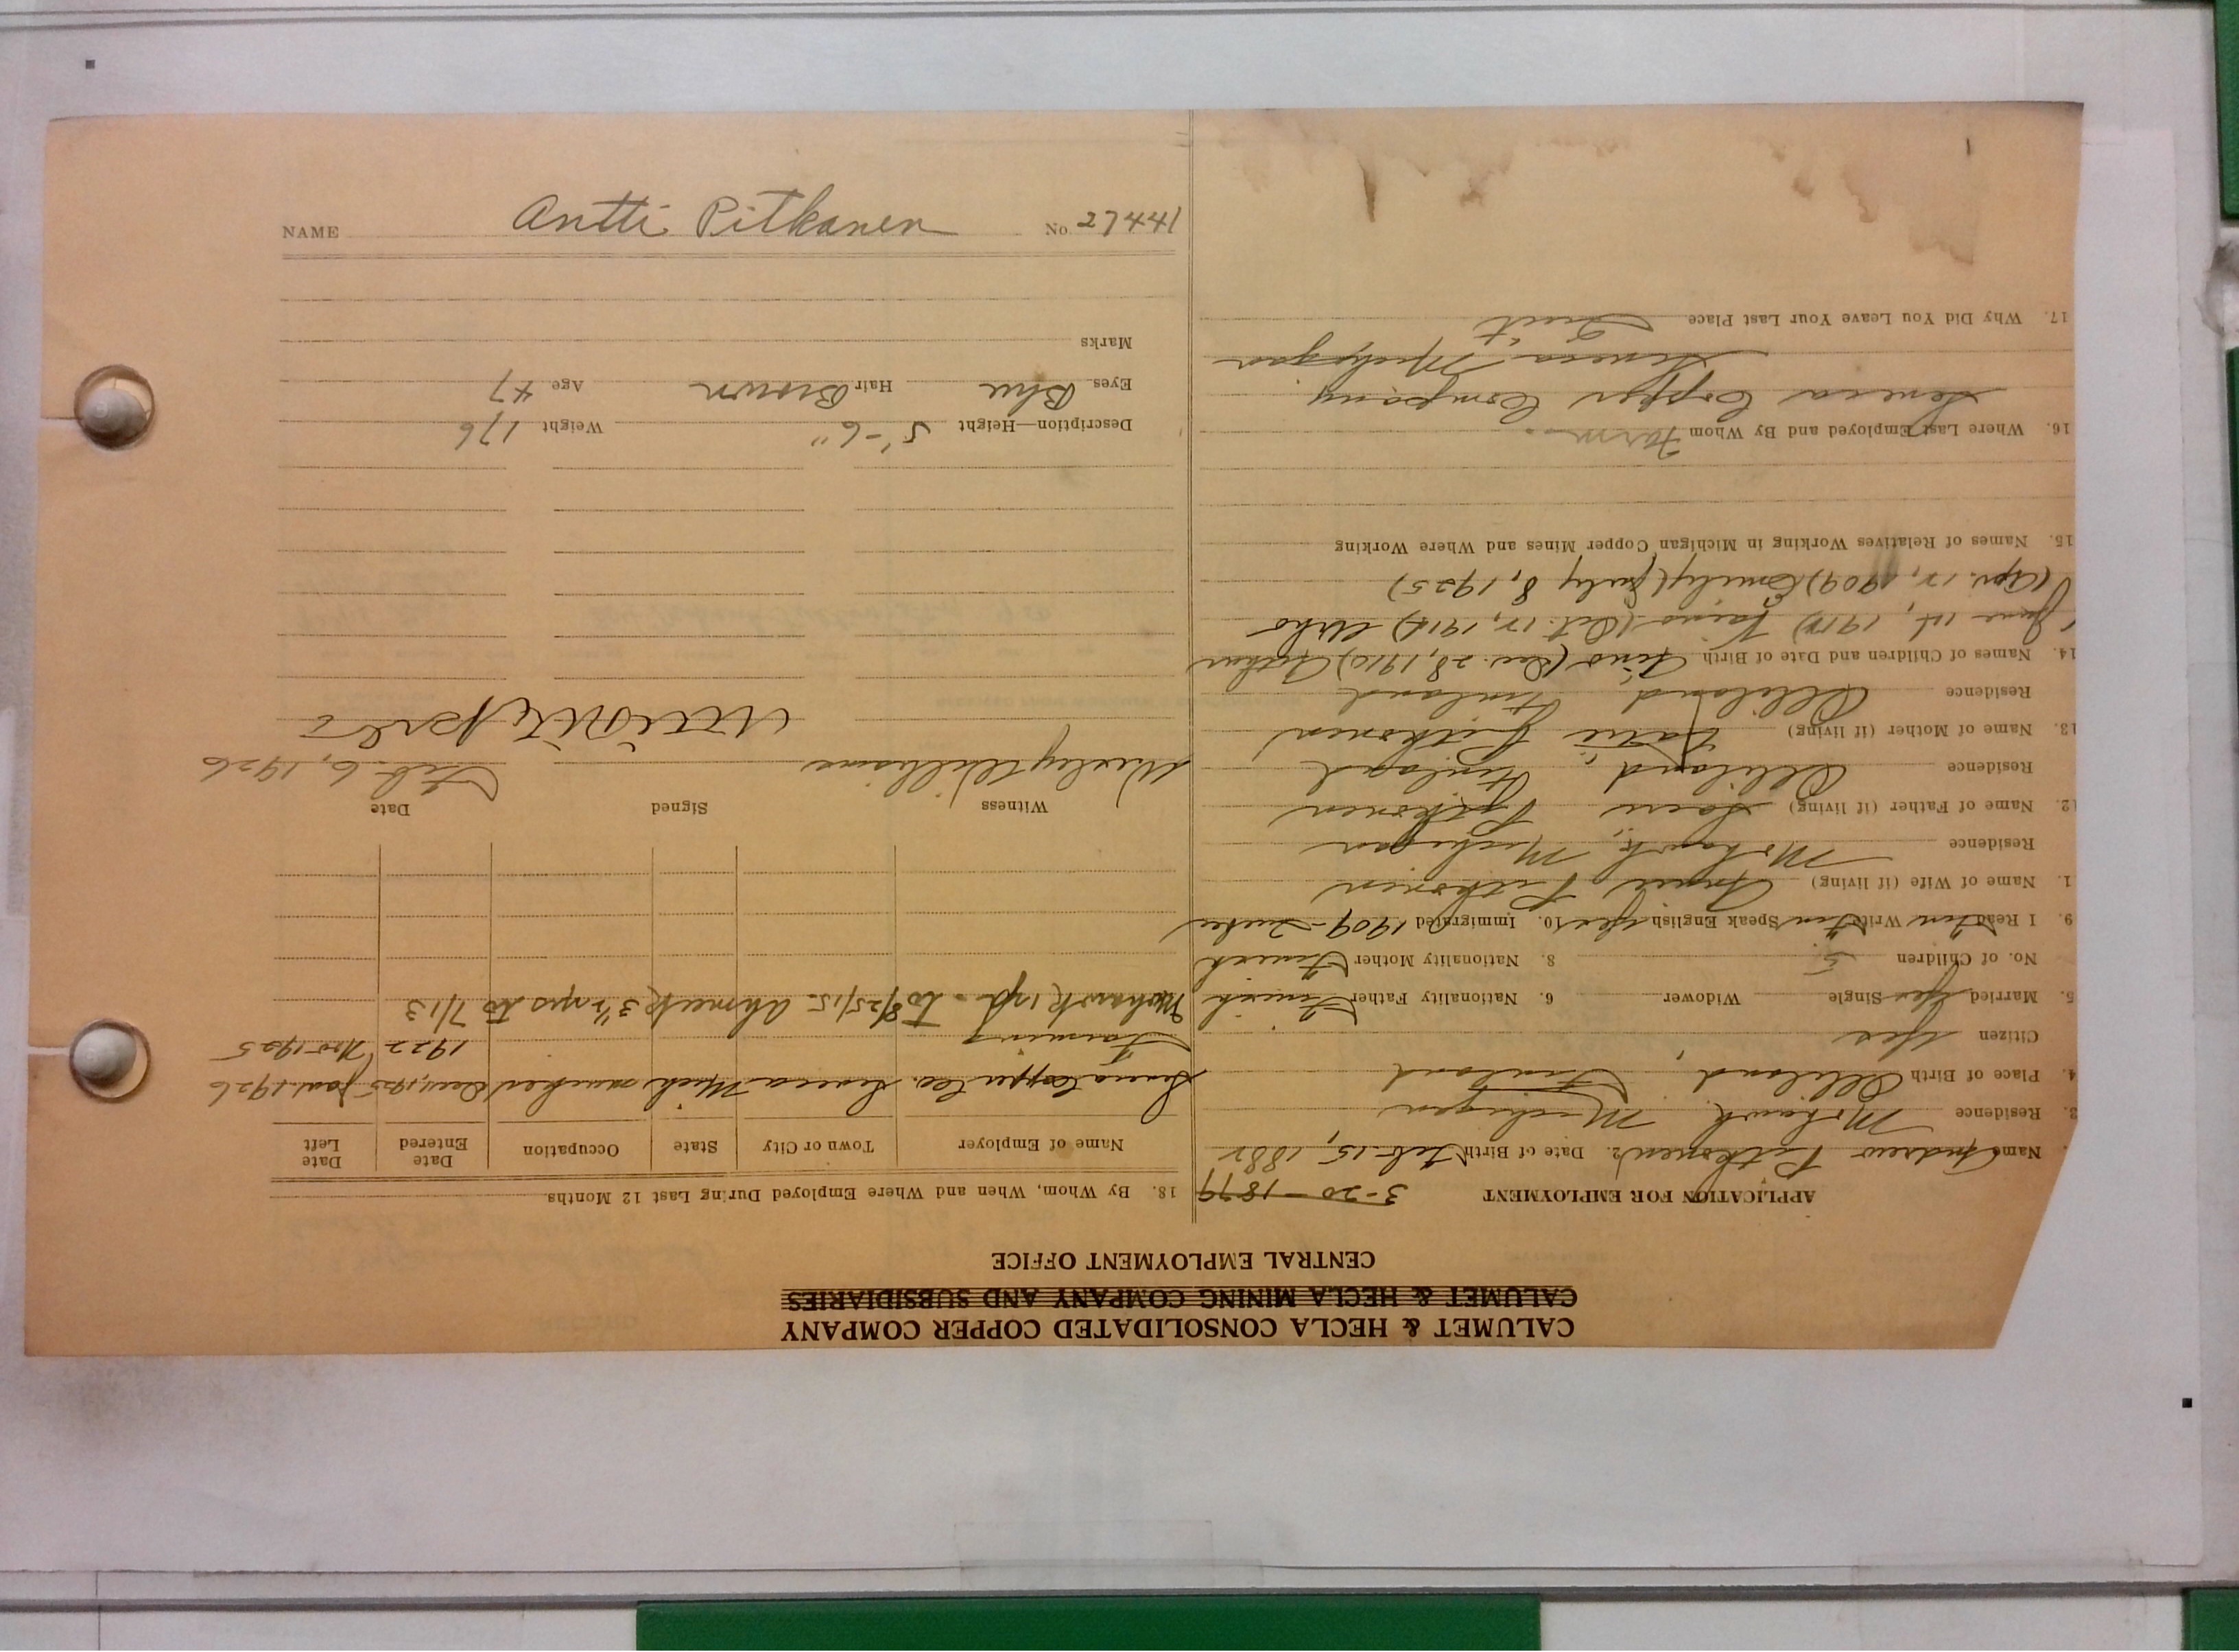 CALUMET & HECLA CONSOLIDATED COPPER COMPANY
CALUMET & HECLA MINING COMPANY AND SUBSIDIARIES
CENTRAL EMPLOYMENT OFFICE
APPLICATION FOR EMPLOYMENT 3-20-1879
Name Andrew Pitkanen 2. Date of Birth Feb. 15, 1882
3. Residence Mohawk Michigan
4. Place of Birth Finland
Citizen Yes
5. Married Yes Single Widower 6. Nationality Father Finnish
No. of Children 5 8. Nationality Mother Finnish
9. I Read Fin Write Fin Speak English Yes 10. Immigrated 1909
1. Name of Wife (if living) Pitkonen
Residence Mohawk, Michigan
12. Name of Father (if living) Pitkonen
Residence Finland
13. Name of Mother (if living) Pitkonen
Residence Finland
14. Names of Children and Date of Birth (Dec. 28, 1910) Arthur
June 1912) Vaino (Oct. 12, 1914) Urho
(Apr. 12, 1909) Emily (July 8, 1925)
15. Names of Relatives Working in Michigan Copper Mines and Where Working
16. Where Last Employed and By Whom Farm
Seneca Copper Company
Seneca Michigan
17. Why Did You Leave Your Last Place Quit
18. By Whom, When and Where Employed During Last 12 Months
Name of Employer Town or City State Occupation Date Entered Date Left
Seneca Copper Co. Seneca Mich Dec. 1925 Jan. 1926
Farming 1922 Nov 1925
Mohawk to 8/25/15. Ahmeek 3½ yrs to 7/13
Witness Signed Date
Wesley Williams Feb. 6, 1926
Description—Height 5'-6" Weight 176
Eyes Blue Hair Brown Age 47
Marks
NAME Antti Pitkanen No. 27441